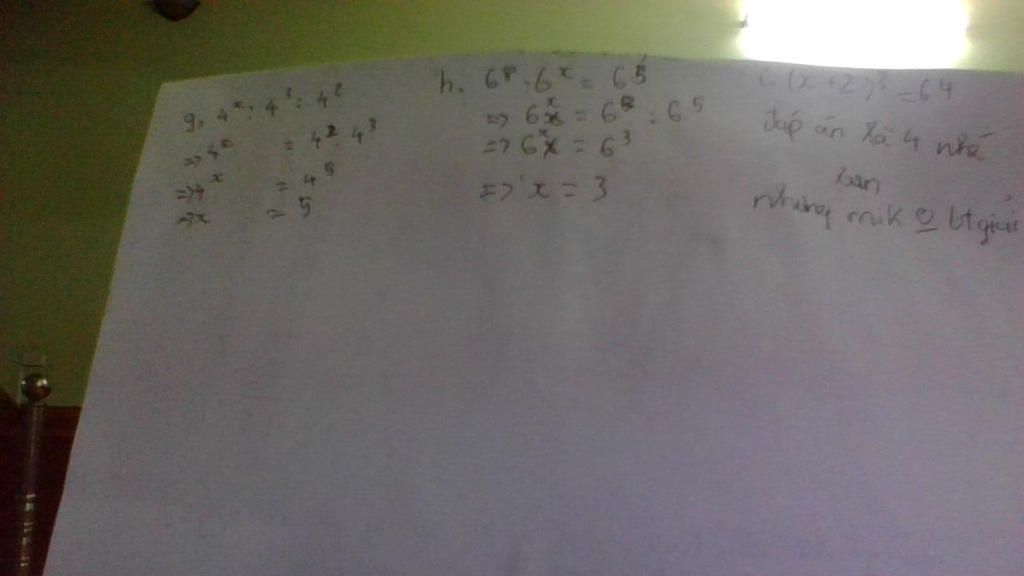 g, 4^x : 4^3 = 4^2
=> 4^x = 4^2 . 4^3
=> 4^x = 4^5
=> x = 5
h. 6^8 : 6^x = 6^5
=> 6^x = 6^8 : 6^5
=> 6^x = 6^3
=> x = 3
i. (x+2)^3 = 64
đáp án là 4 nhá
bạn
nhưng mik o bt giải